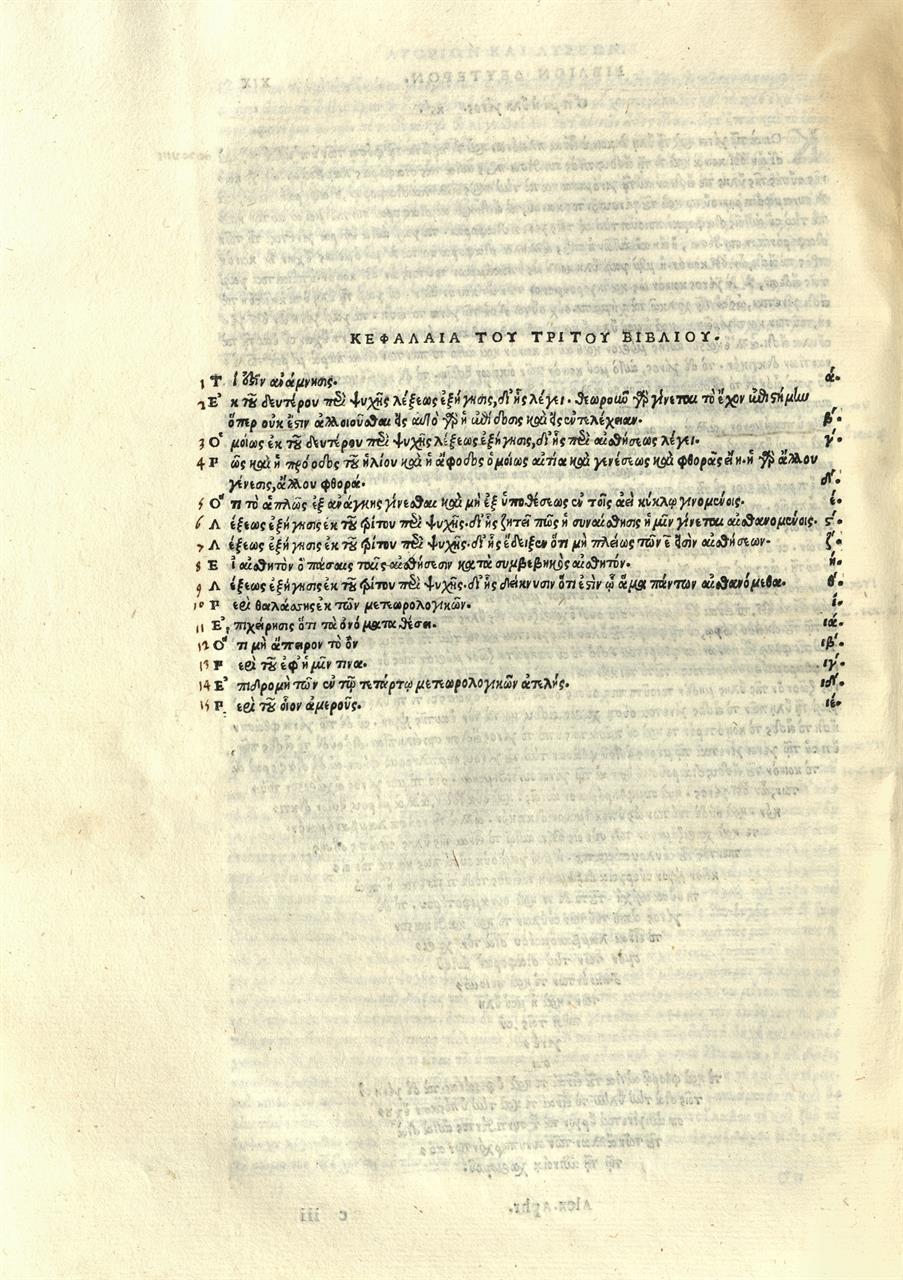 ΚΕΦΑΛΑΙΑ ΤΟΥ ΤΡΙΤΟΥ ΒΙΒΛΙΟΥ.
1 Τ ί ὅτιν ἀνάμνησις. ά.
2 Ε᾽ κ τοῦ δευτέρου περὶ ψυχῆς λέξεως ἐξήγησις, δι' ἧς λέγει. θεωροιῶ γὰρ γίνεται τὸ ἔχον ἐπιστήμην
ὅπερ οὐκ ἔστιν ἀλλοιοῦσθαι εἰς αὐτὸ γὰρ ἡ ἐπίδοσις καὶ εἰς ἐντελέχειαν. β΄.
3 Ο῾ μοίως ἐκ τοῦ δευτέρου περὶ ψυχῆς λέξεως ἐξήγησις, δι' ἧς περὶ αἰσθήσεως λέγει. γ΄.
4 Π ῶς καὶ ἡ πρόοδος τοῦ ἡλίου καὶ ἡ ἄφοδος ὁμοίως αἰτία καὶ γενέσεως καὶ φθορᾶς εἴη. ἡ γὰρ ἄλλου
γένεσις, ἄλλου φθορά. δ΄.
5 Ο῞ τι τὸ ἁπλῶς ἐξ ἀνάγκης γίνεσθαι καὶ μὴ ἐξ ὑποθέσεως ἐν τοῖς ἀεὶ κύκλῳ γινομένοις. έ.
6 Λ έξεως ἐξήγησις ἐκ τοῦ τρίτου περὶ ψυχῆς. δι' ἧς ζητεῖ πῶς ἡ συναίσθησις ἡμῖν γίνεται αἰσθανομένοις. ς΄.
7 Λ έξεως ἐξήγησις ἐκ τοῦ τρίτου περὶ ψυχῆς. δι' ἧς ἔδειξεν ὅτι μὴ πλείως τῶν ε̄ εἰσὶν αἰσθήσεων. ζ΄.
8 Ε ἰ αἰσθητὸν ὃ πάσαις ταῖς αἰσθήσεσιν κατὰ συμβεβηκὸς αἰσθητόν. ή.
9 Λ έξεως ἐξήγησις ἐκ τοῦ τρίτου περὶ ψυχῆς. δι' ἧς δείκνυσιν ὅτι ἔστιν ᾧ ἅμα πάντων αἰσθανόμεθα. θ΄.
10 Π ερὶ θαλάσσης ἐκ τῶν μετεωρολογικῶν. ί.
11 Ε᾽ πιχείρησις ὅτι τὰ ὀνόματα θέσει. ιά.
12 Ο῞ τι μὴ ἄπειρον τὸ ὂν ιβ΄.
13 Π ερὶ τοῦ ἐφ' ἡμῖν τινα. ιγ΄.
14 Ε᾽ πιδρομὴ τῶν ἐν τῷ τετάρτῳ μετεωρολογικῶν ἀτελής. ιδ΄.
15 Π ερὶ τοῦ οἷον ἀμεροῦς. ιέ.